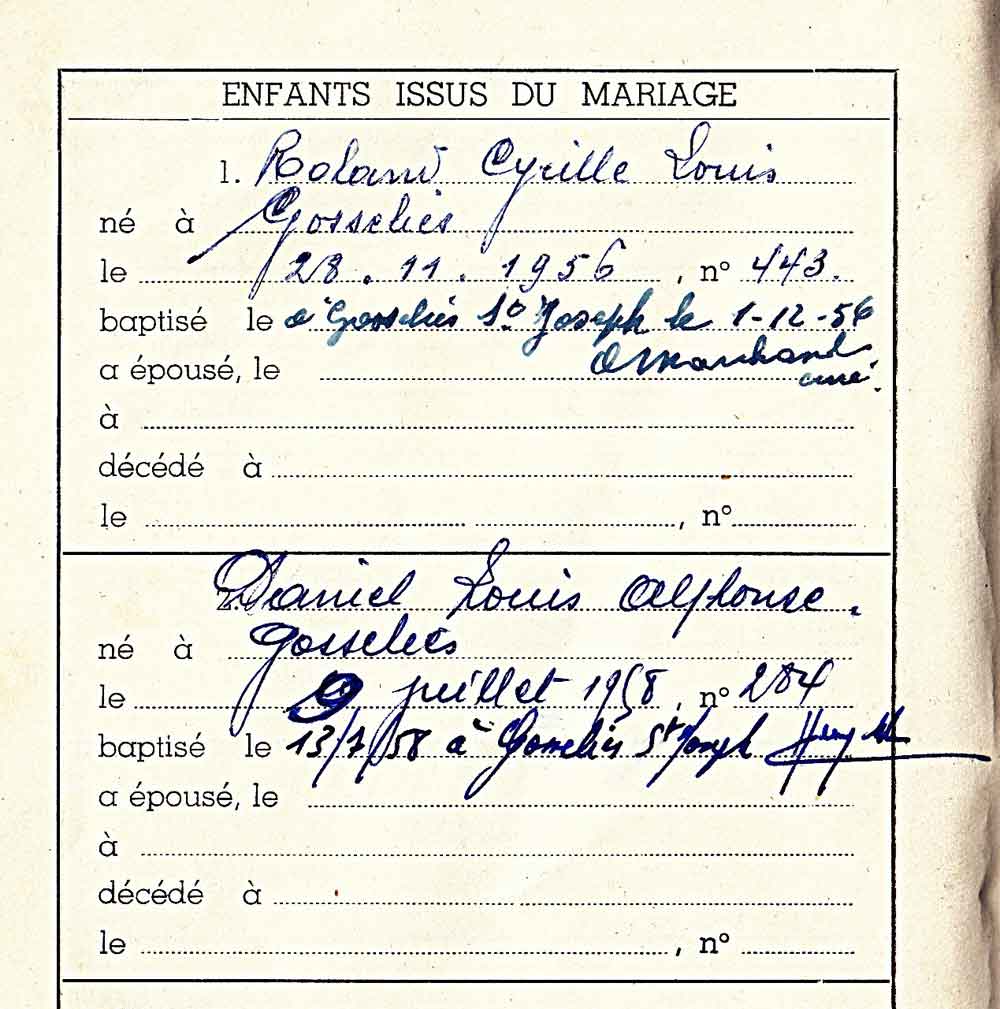 ENFANTS ISSUS DU MARIAGE
1. Roland Cyrille Louis
né à Gosselies
le 28.11.1956, n° 443.
baptisé le à Gosselies St Joseph le 1-12-56
a épousé, le Marchand
curé.
à
décédé à
le , n°
2. Daniel Louis Alphonse.
né à Gosselies
le 9 juillet 1958, n° 284
baptisé le 13/7/58 à Gosselies St Joseph
a épousé, le
à
décédé à
le , n°